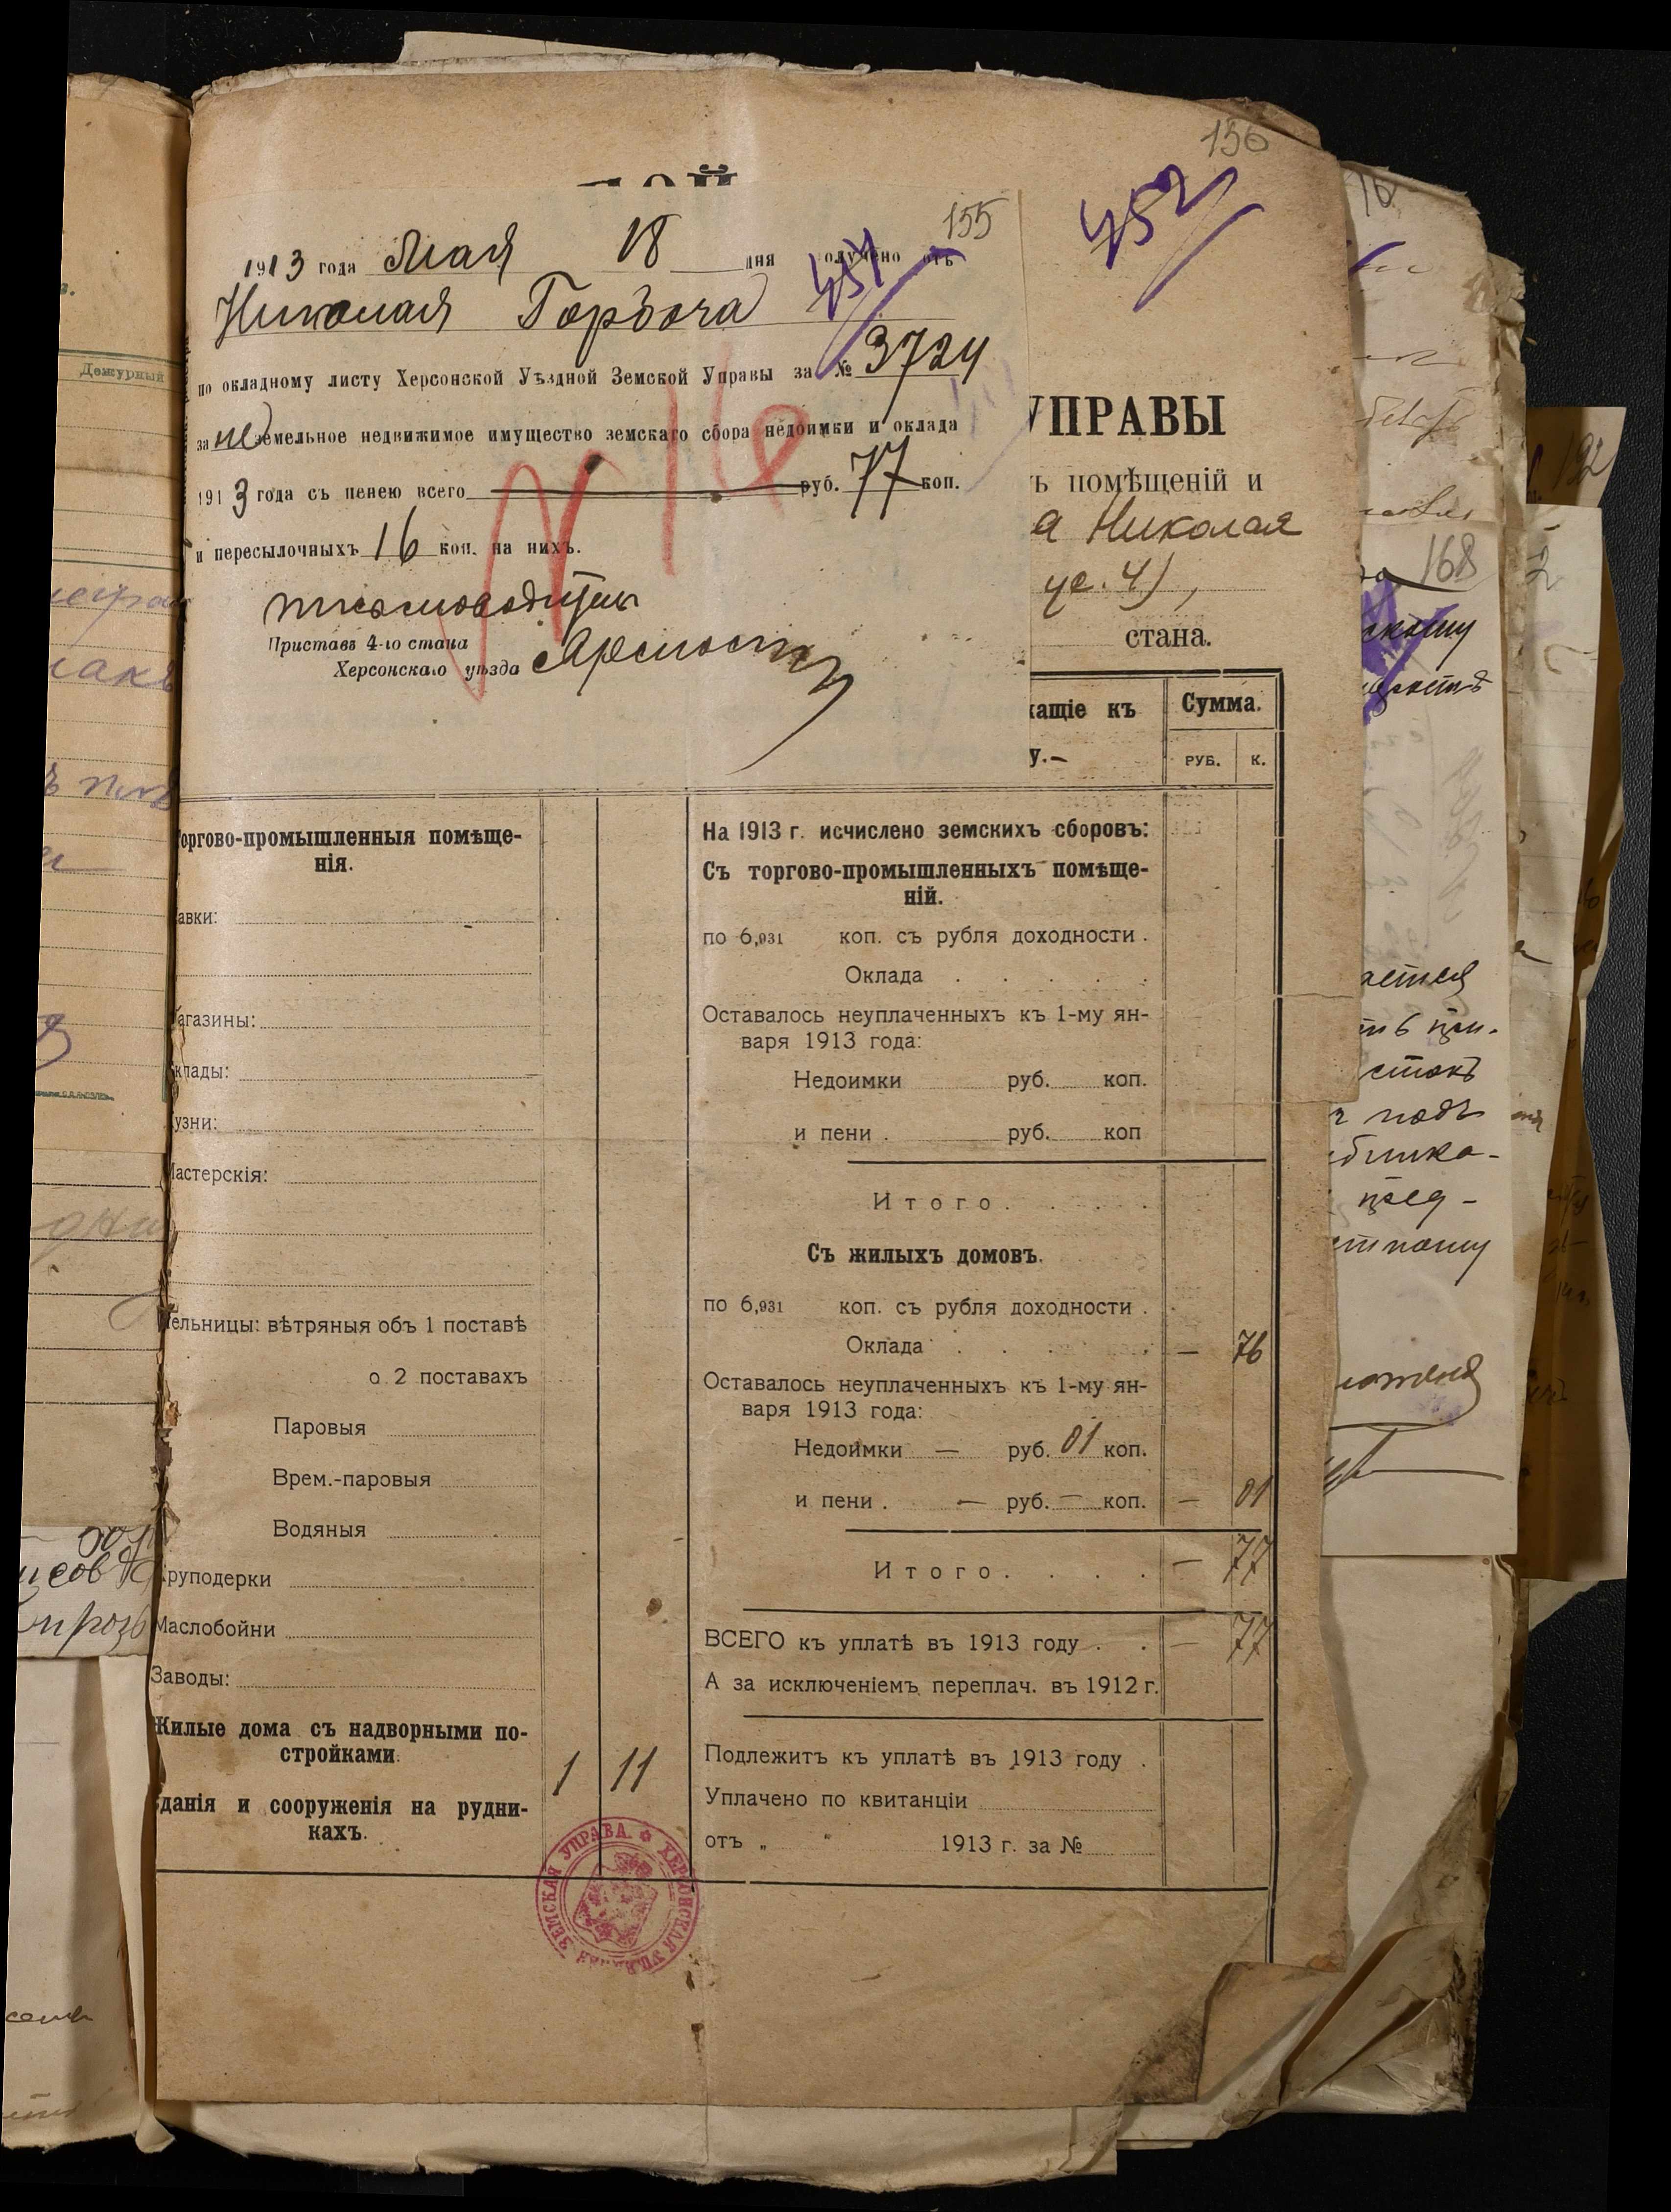 156
452
155
1913 года Мая 18 дня получено отъ
451
Николая Горбоча
по окладному листу Херсонской Уѣздной Земской Управы за № 3724
за неземельное недвижимое имущество земскаго сбора недоимки и оклада
1913 года съ пенею всего руб. 77 коп.
и пересылочныхъ 16 коп. на нихъ.
N 16
письмоводитель
Приставъ 4-го стана
Херсонскаго уѣзда
УПРАВЫ
ъ помѣщеній и
а Николая
ус. 4),
стана.
жащіе къ
у.—
Сумма.
РУБ. К.
Торгово-промышленныя помѣще-
нія.
Лавки:
Магазины:
Склады:
Кузни:
Мастерскія:
Мельницы: вѣтряныя объ 1 поставѣ
о 2 поставахъ
Паровыя
Врем.-паровыя
Водяныя
Круподерки
Маслобойни
Заводы:
Жилые дома съ надворными по-
стройками.
1 11
Зданія и сооруженія на рудни-
кахъ.
На 1913 г. исчислено земскихъ сборовъ:
Съ торгово-промышленныхъ помѣще-
ній.
по 6,931 коп. съ рубля доходности .
Оклада . . . . .
Оставалось неуплаченныхъ къ 1-му ян-
варя 1913 года:
Недоимки руб. коп.
и пени . руб. коп
Итого. . . .
Съ жилыхъ домовъ.
по 6,931 коп. съ рубля доходности .
Оклада . . . . . — 76
Оставалось неуплаченныхъ къ 1-му ян-
варя 1913 года:
Недоимки — руб. 01 коп.
и пени . — руб. — коп. — 01
Итого. . . . — 77
ВСЕГО къ уплатѣ въ 1913 году . . — 77
А за исключеніемъ переплач. въ 1912 г.
Подлежитъ къ уплатѣ въ 1913 году .
Уплачено по квитанціи
отъ „ “ 1913 г. за №
ХЕРСОНСКАЯ УѢЗДНАЯ ЗЕМСКАЯ УПРАВА.
Дежурный
168
192
стокъ
подъ
пред-